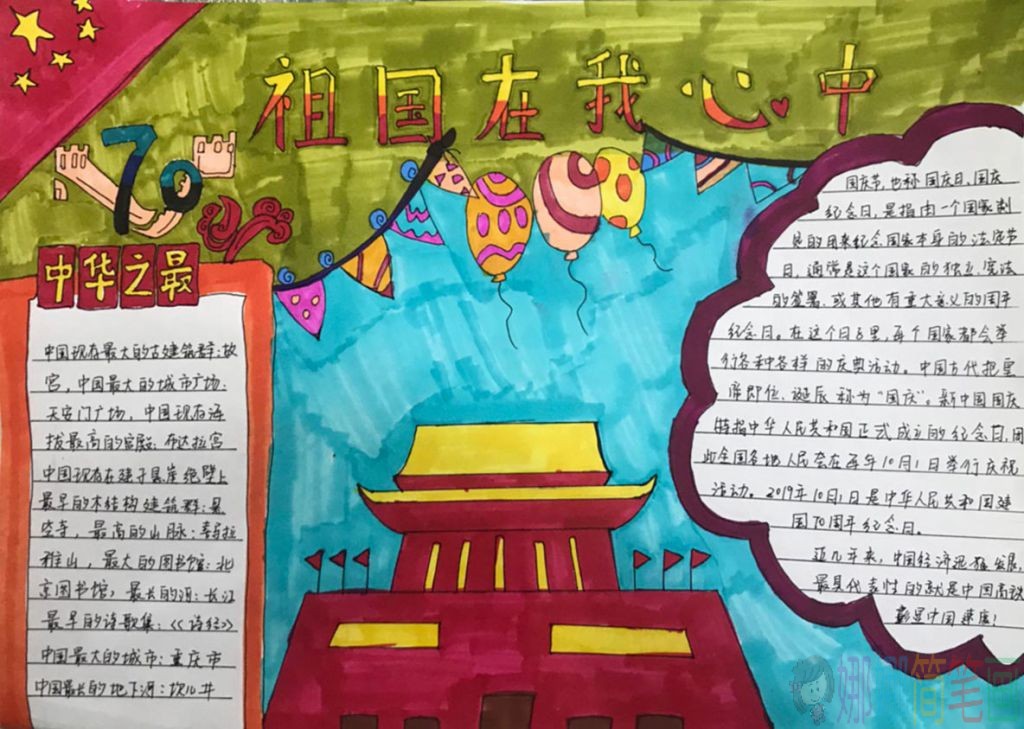 祖国在我心中
70
中华之最
中国现存最大的古建筑群：故
宫，中国最大的城市广场：
天安门广场，中国现存海
拔最高的宫殿：布达拉宫
中国现存在建于悬崖绝壁上
最早的木结构建筑群：悬
空寺，最高的山脉：喜马拉
雅山，最大的图书馆：北
京图书馆，最长的河：长江
最早的诗歌集：《诗经》
中国最大的城市：重庆市
中国最长的地下河：坎儿井
国庆节，也称国庆日、国庆
纪念日，是指由一个国家制
定的用来纪念国家本身的法定节
日，通常是这个国家的独立、宪法
的签署、或其他有重大意义的周年
纪念日。在这个日子里，每个国家都会举
行各种各样的庆典活动。中国古代把皇
帝即位、诞辰称为“国庆”。新中国国庆
特指中华人民共和国正式成立的纪念日，因
此全国各地人民会在每年10月1日举行庆祝
活动。2019年10月1日是中华人民共和国建
国70周年纪念日。
近几年来，中国经济迅猛发展，
最具代表性的就是中国高铁
彰显中国速度！
娜娜简笔画